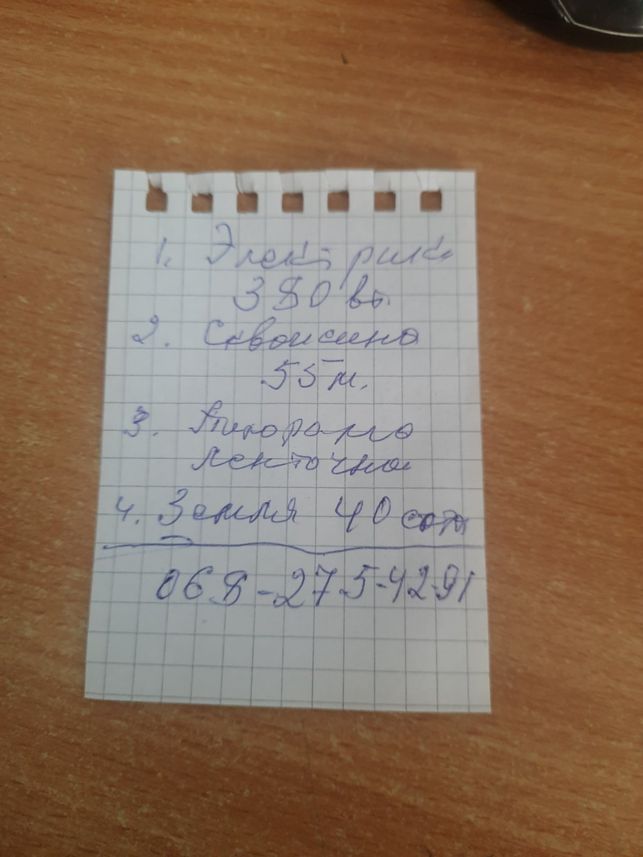 1. Электрика
380 вт.
2. Скважина
55 м.
3. Пилорама
ленточная
4. Земля 40 сот
068-275-42-91